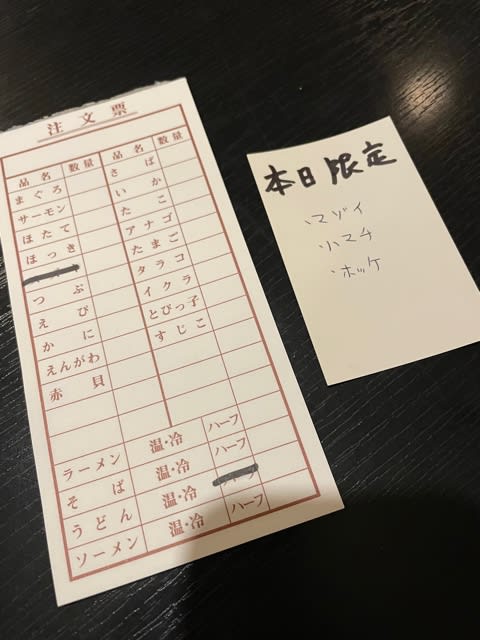 注文票
品名 数量 品名 数量
まぐろ さば
サーモン いか
ほたて たこ
ほっき アナゴ
たまご
つぶ タラコ
えび イクラ
かに とびっ子
えんがわ すじこ
赤貝
ラーメン 温・冷 ハーフ
そば 温・冷 ハーフ
うどん 温・冷
ソーメン 温・冷 ハーフ
本日限定
・マゾイ
・ハマチ
・ホッケ